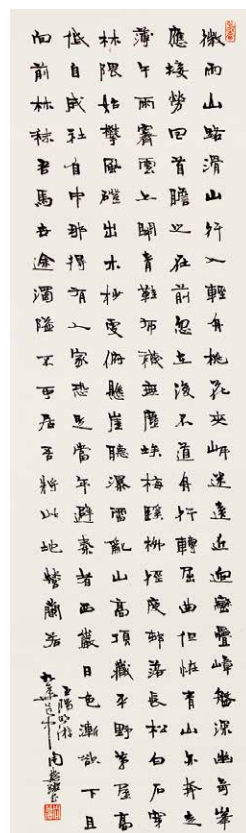 微雨山路滑山行入輕舟桃花夾岍迷遠近迴巒疊嶂盤深幽奇峯
應接勞回首瞻之在前忽在後不道舟行轉屈曲但怪青山亦奔走
薄午雨霽雲上開青鞋布襪無塵埃梅蹊柳徑度邨落長松白石穿
林隈始攀風磴出木杪更俯懸崖聽瀑雷亂山高頂藏平野茅屋高
低自成社此中那得有人家恐是當年避秦者西巖日色漸欲下且
向前林秣吾馬世途濁隘不可居吾將此地營蘭若
王陽明游